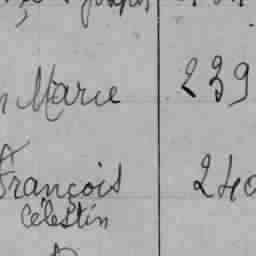 Marie 239
François 240
Célestin